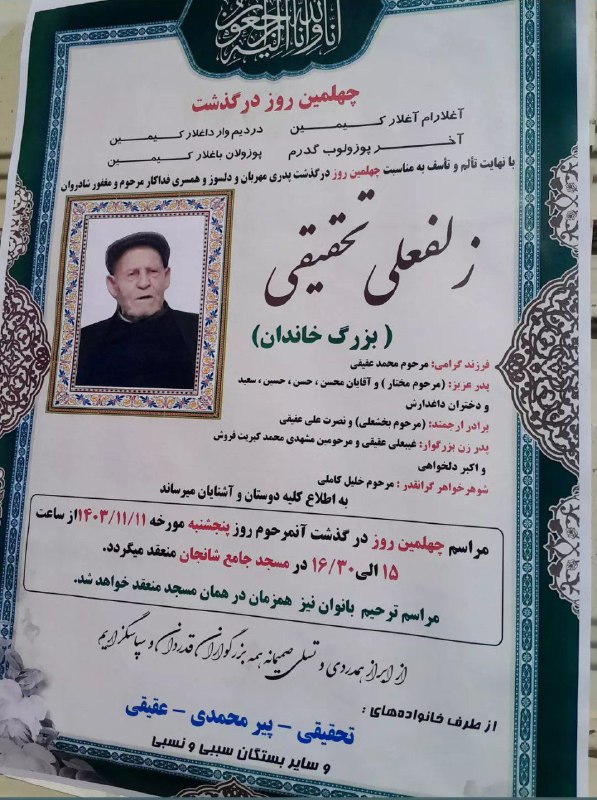 انا لله و انا الیه راجعون
چهلمین روز درگذشت
آغلارام آغلار کیمین
دردیم وار داغلار کیمین
آخر پوزولوب گدرم
پوزولان باغلار کیمین
با نهایت تألم و تأسف به مناسبت چهلمین روز درگذشت پدری مهربان و دلسوز و همسری فداکار مرحوم و مغفور شادروان
زلفعلی تحقیقی
(بزرگ خاندان)
فرزند گرامی: مرحوم محمد عقیقی
پدر عزیز: (مرحوم مختار) و آقایان محسن ، حسن ، حسین ، سعید
و دختران داغدارش
برادر ارجمند: (مرحوم بخشعلی) و نصرت علی عقیقی
پدر زن بزرگوار: غیبعلی عقیقی و مرحومین مشهدی محمد کبریت فروش
و اکبر دلخواهی
شوهر خواهر گرانقدر : مرحوم خلیل کاملی
به اطلاع کلیه دوستان و آشنایان میرساند
مراسم چهلمین روز درگذشت آنمرحوم روز پنجشنبه مورخه ۱۴۰۳/۱۱/۱۱ از ساعت
۱۵ الی ۱۶/۳۰ در مسجد جامع شانجان منعقد میگردد.
مراسم ترحیم بانوان نیز همزمان در همان مسجد منعقد خواهد شد.
از ابراز همدردی و تسلی صمیمانه همه بزرگواران قدردان و سپاسگزاریم
از طرف خانواده‌های :
تحقیقی - پیر محمدی - عقیقی
و سایر بستگان سببی و نسبی